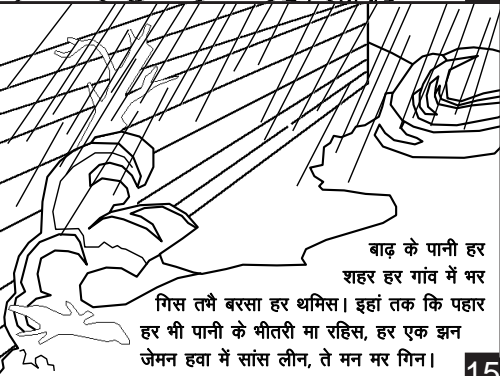 बाढ़ के पानी हर
शहर हर गांव में भर
गिस तभै बरसा हर थमिस। इहां तक कि पहार
हर भी पानी के भीतरी मा रहिस, हर एक झन
जेमन हवा में सांस लीन, ते मन मर गिन।
15